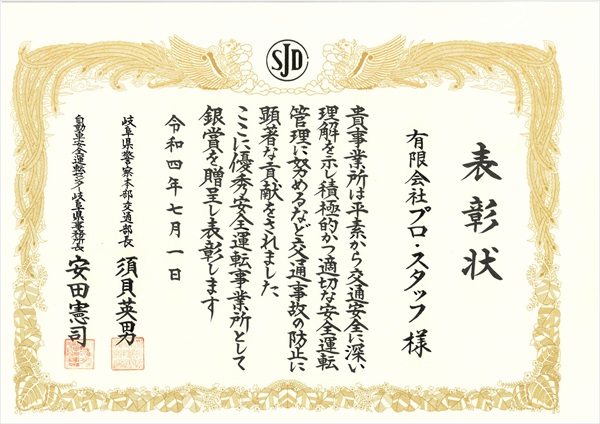 SJD
表彰状
有限会社プロ・スタッフ 様
貴事業所は平素から交通安全に深い
理解を示し積極的かつ適切な安全運転
管理に努めるなど交通事故の防止に
顕著な貢献をされました
ここに優秀安全運転事業所として
銀賞を贈呈し表彰します
令和四年七月一日
岐阜県警察本部交通部長 須貝英男
自動車安全運転センター岐阜県事務所長 安田憲司